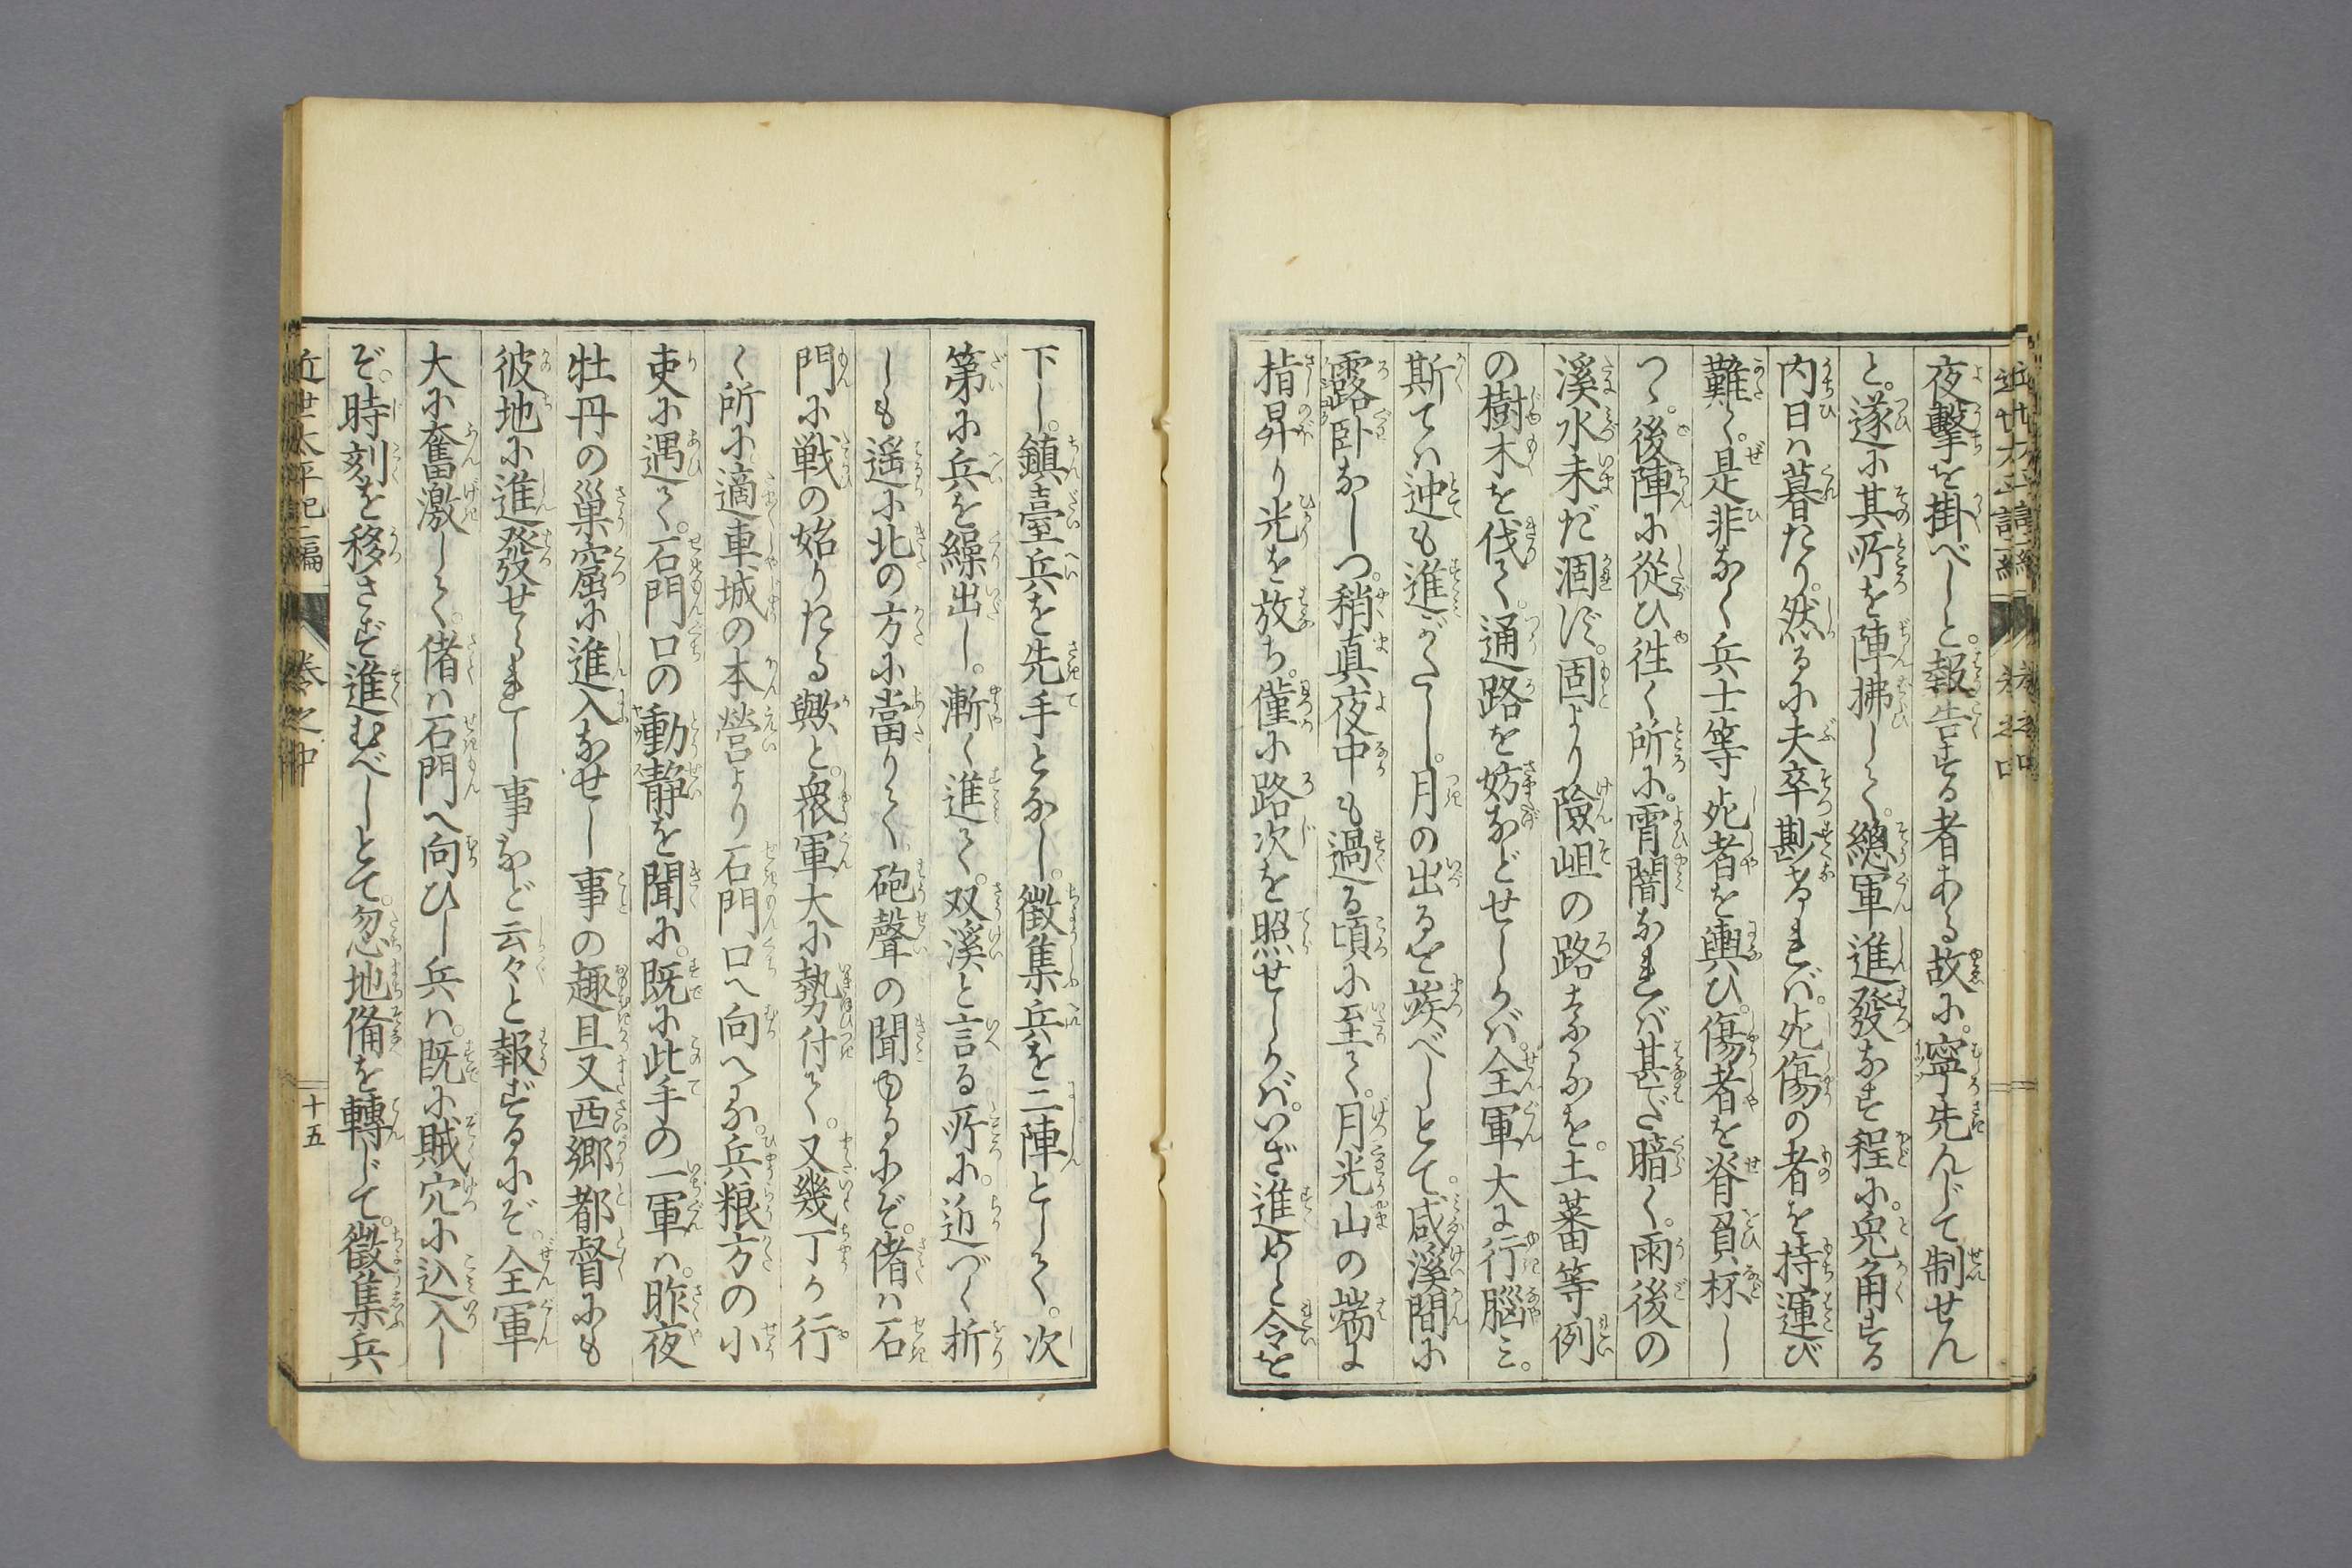 夜擊を掛べしと。報告する者ある故に。寧先んじて制せん
と。遂に其所を陣拂して。總軍進發なす程に。兎角する
内日は暮たり。然るに夫卒尠けれバ。死傷の者を持運び
難く。是非なく兵士等死者を輿ひ。傷者を脊負杯し
つゝ。後陣に從ひ徃く所に。霄闇なれバ甚だ暗く。雨後の
溪水未だ涸ず。固より險岨の路なるを。土蕃等例
の樹木を伐て。通路を妨などせしかバ。全軍大に行腦ミ。
斯てハ迚も進がたし。月の出るを竢べしとて。咸溪間に
露臥なしつ。稍真夜中も過る頃に至て。月光山の端に
指昇り光を放ち。僅に路次を照せしかバ。いざ進めと令を
下し。鎮臺兵を先手となし。徴集兵を二陣として。次
第に兵を繰出し。漸く進て。双溪と言る所に。近づく折
しも遥に北の方に當りて。砲聲の聞ゆるにぞ。偖ハ石
門に戦の始りたる歟と。衆軍大に勢付て。又幾丁か行
く所に。適車城の本營より石門口へ向へる。兵粮方の小
吏に遇て。石門口の動静を聞に。既に此手の一軍ハ。昨夜
牡丹の巣窟に進入なせし事の趣且又西郷都督にも
彼地に進發せられし事など云々と報ずるにぞ。全軍
大に奮激して。偖ハ石門へ向ひし兵ハ。既に賊穴に込入し
ぞ。時刻を移さず進むべしとて。忽地備を轉じて。徴集兵
近世太平記二編 巻之中 十五